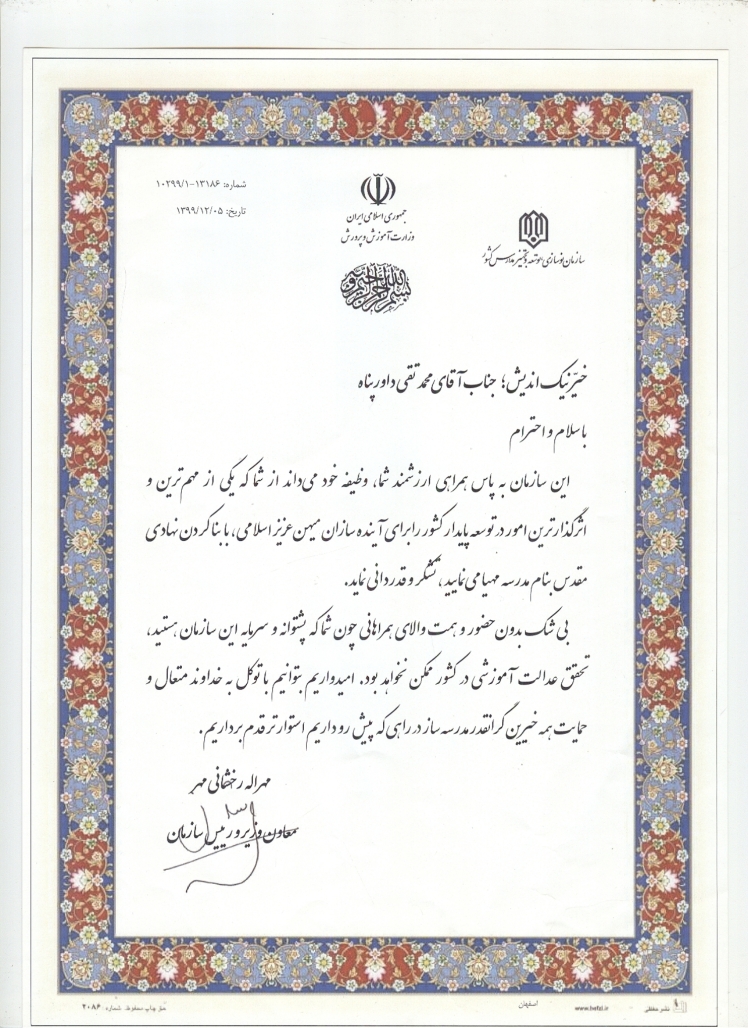 شماره: ۱۰۲۹۹/۱-۱۳۱۸۶
تاریخ: ۱۳۹۹/۱۲/۰۵
جمهوری اسلامی ایران
وزارت آموزش و پرورش
سازمان نوسازی، توسعه و تجهیز مدارس کشور
بسم الله الرحمن الرحیم
خیّر نیک اندیش؛ جناب آقای محمد تقی داورپناه
با سلام و احترام
این سازمان به پاس همراهی ارزشمند شما، وظیفه خود می‌داند از شما که یکی از مهم‌ترین و
اثرگذارترین امور در توسعه پایدار کشور را برای آینده سازان میهن عزیز اسلامی، با بنا کردن نهادی
مقدس بنام مدرسه مهیا می‌نمایید، تشکر و قدردانی نماید.
بی شک بدون حضور و همت والای همراهانی چون شما که پشتوانه و سرمایه این سازمان هستید،
تحقق عدالت آموزشی در کشور ممکن نخواهد بود. امیدواریم بتوانیم با توکل به خداوند متعال و
حمایت همه خیرین گرانقدر مدرسه ساز در راهی که پیش رو داریم استوارتر قدم برداریم.
مهراله رخشانی مهر
معاون وزیر و رییس سازمان
حق چاپ محفوظ. شماره: ۲۰۸۶
اصفهان